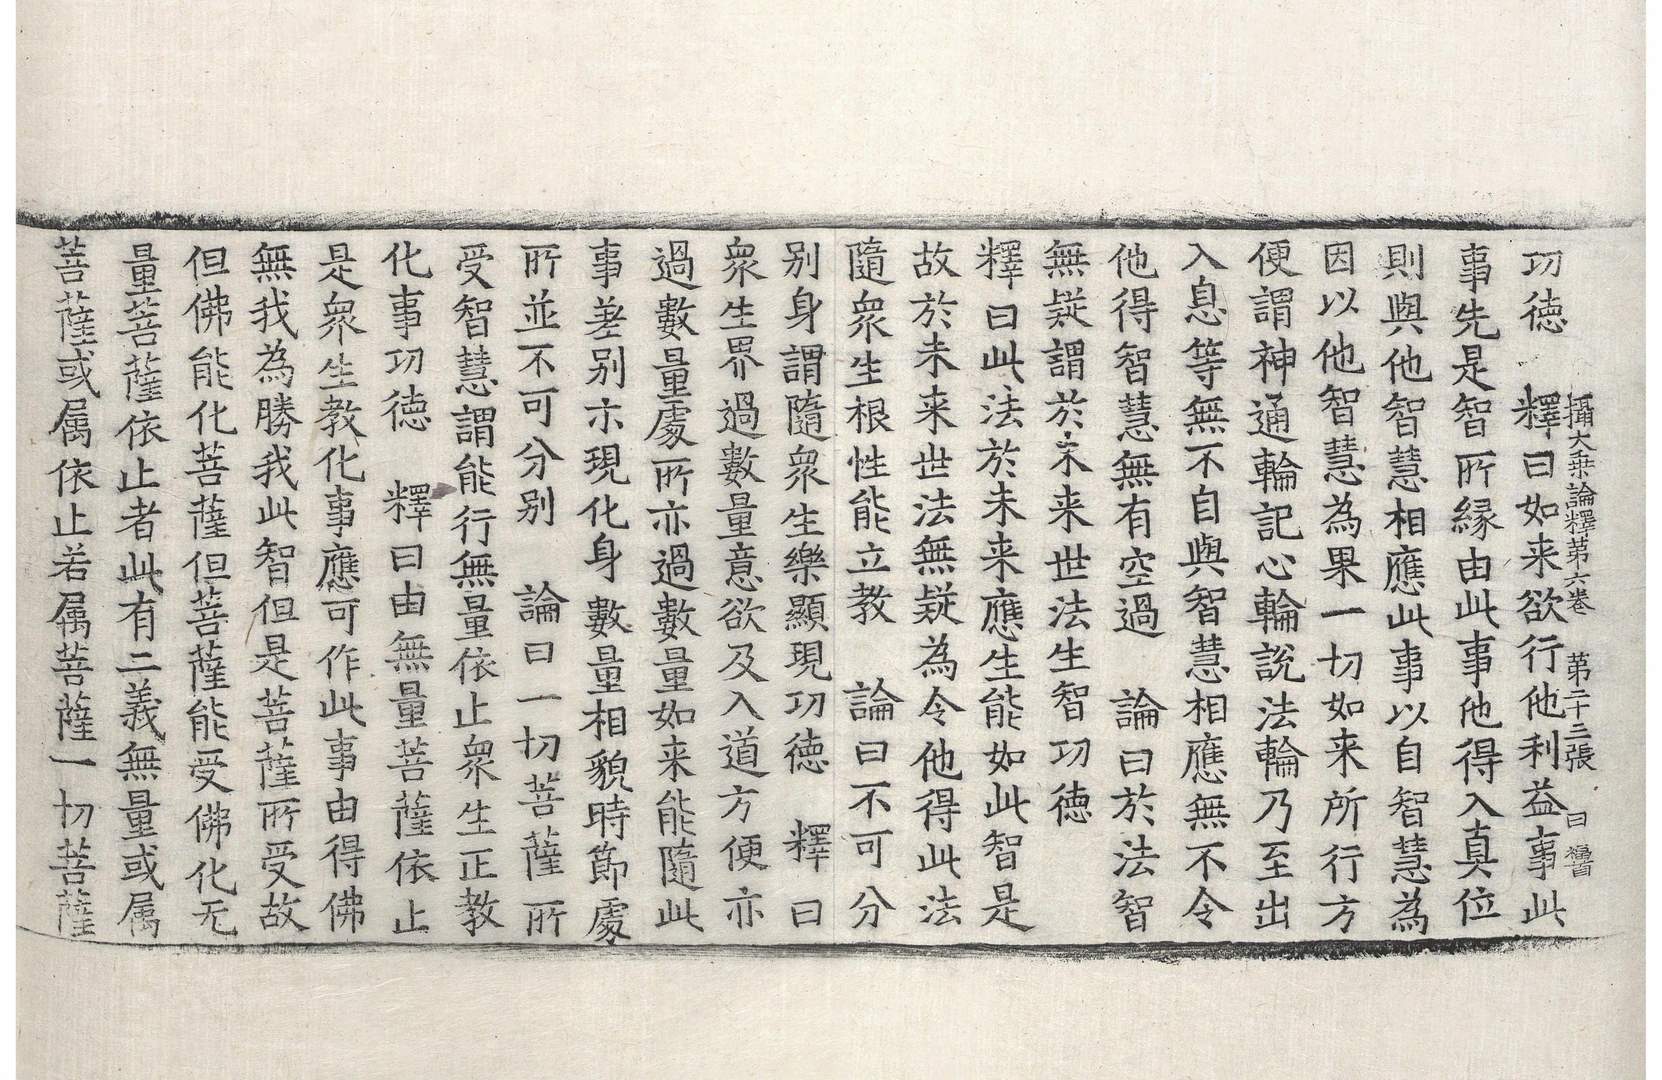 攝大乗論釋第六卷 第二十三張 曰
功德 釋曰如来欲行他利益事此
事先是智所縁由此事他得入真位
則與他智慧相應此事以自智慧為
因以他智慧為果一切如来所行方
便謂神通輪記心輪說法輪乃至出
入息等無不自與智慧相應無不令
他得智慧無有空過 論曰於法智
無疑謂於未来世法生智功德
釋曰此法於未来應生能如此智是
故於未来世法無疑為令他得此法
隨衆生根性能立教 論曰不可分
别身謂隨衆生樂顯現功德 釋曰
衆生界過數量意欲及入道方便亦
過數量處所亦過數量如来能隨此
事差别亦現化身數量相貌時節處
所並不可分别 論曰一切菩薩所
受智慧謂能行無量依止衆生正教
化事功德 釋曰由無量菩薩依止
是衆生教化事應可作此事由得佛
無我為勝我此智但是菩薩所受故
但佛能化菩薩但菩薩能受佛化无
量菩薩依止者此有二義無量或属
菩薩或属依止若属菩薩一切菩薩